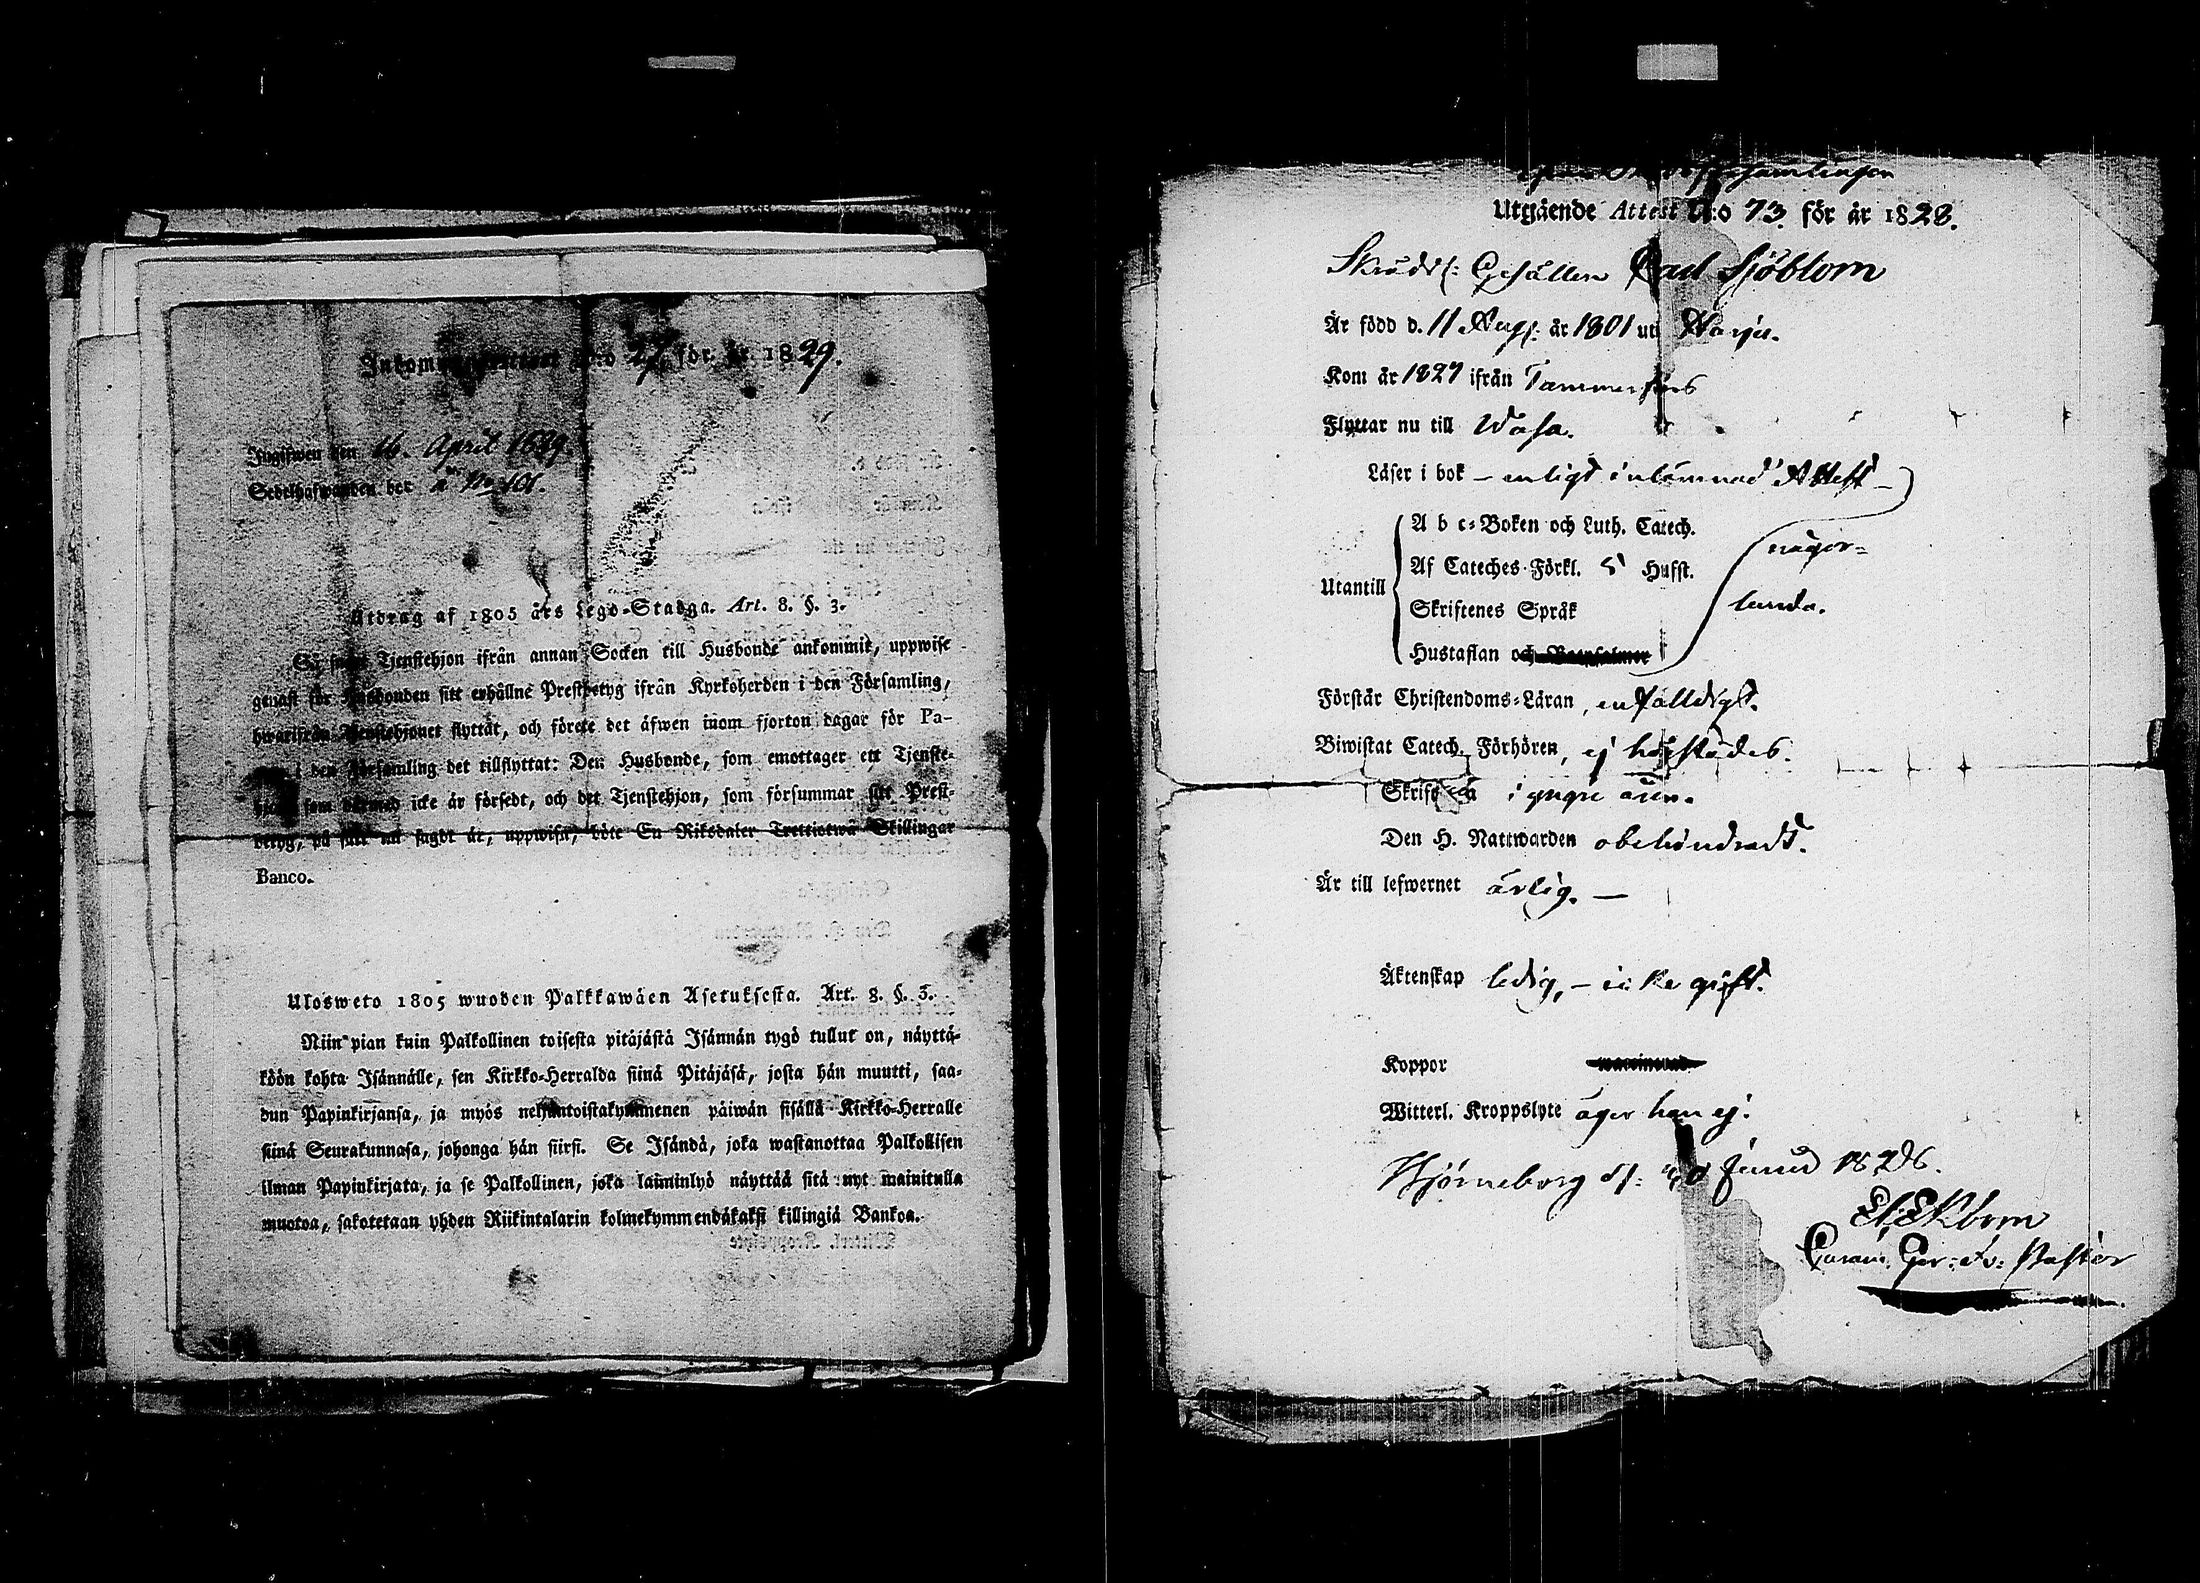 Inkommande Attest N:o 27 för år 1829.
Ingifwen den 16. April 1829.
Sedelhafwanden bor å N:o 101.
Utdrag af 1805 års Lego-Stadga. Art. 8. §. 3.
Så snart Tjenstehjon ifrån annan Socken till Husbonde ankommit, uppwise
genast för Husbonden sitt erhållne Prestbetyg ifrån Kyrkoherden i den Församling,
hwarifrån Tjenstehjonet flyttat, och förete det äfwen inom fjorton dagar för Pa-
i den Församling det tillflyttat: Den Husbonde, som emottager ett Tjenste-
hjon som dermed icke är försedt, och det Tjenstehjon, som försummar sitt Prest-
betyg, på sätt nu sagdt är, uppwisa, böte En Riksdaler Trettiotwå Skillingar
Banco.
Ulosweto 1805 wuoden Palkkawäen Asetuksesta. Art. 8. §. 3.
Niin pian kuin Palkollinen toisesta pitäjästä Isännän tygö tullut on, näyttä-
köön kohta Isännälle, sen Kirkko-Herralda siinä Pitäjäsä, josta hän muutti, saa-
dun Papinkirjansa, ja myös neljäntoistakymmenen päiwän sisällä Kirkko-Herralle
siinä Seurakunnasa, johonga hän siirsi. Se Isändä, joka wastanottaa Palkollisen
ilman Papinkirjata, ja se Palkollinen, joka laiminlyö näyttää sitä nyt mainitulla
muotoa, sakotetaan yhden Riikintalarin kolmekymmendäkaksi killingiä Bankoa.
Utgående Attest N:o 73 för år 1828.
Skrädd: Gesällen Carl Sjöblom
Är född d. 11 Aug: år 1801 uti Harju.
Kom år 1827 ifrån Tammerfors
Flyttar nu till Wasa.
Läser i bok – enligt inlämnad Attest –
Utantill
A b c-Boken och Luth. Catech.
Af Cateches Förkl. 5 Hufst.
Skriftenes Språk
Hustaflan och Botpsalmer
någor-
lunda.
Förstår Christendoms-Läran, enfalldigt.
Biwistat Catech. Förhören, ej härstädes.
Skrift i yngre åren.
Den H. Nattwarden obehindradt.
Är till lefwernet ärlig. —
Äktenskap ledig, – icke gift.
Koppor
Witterl. Kroppslyte äger han ej.
Björneborg d: Junii 1828.
El: Ekbom
Past:or